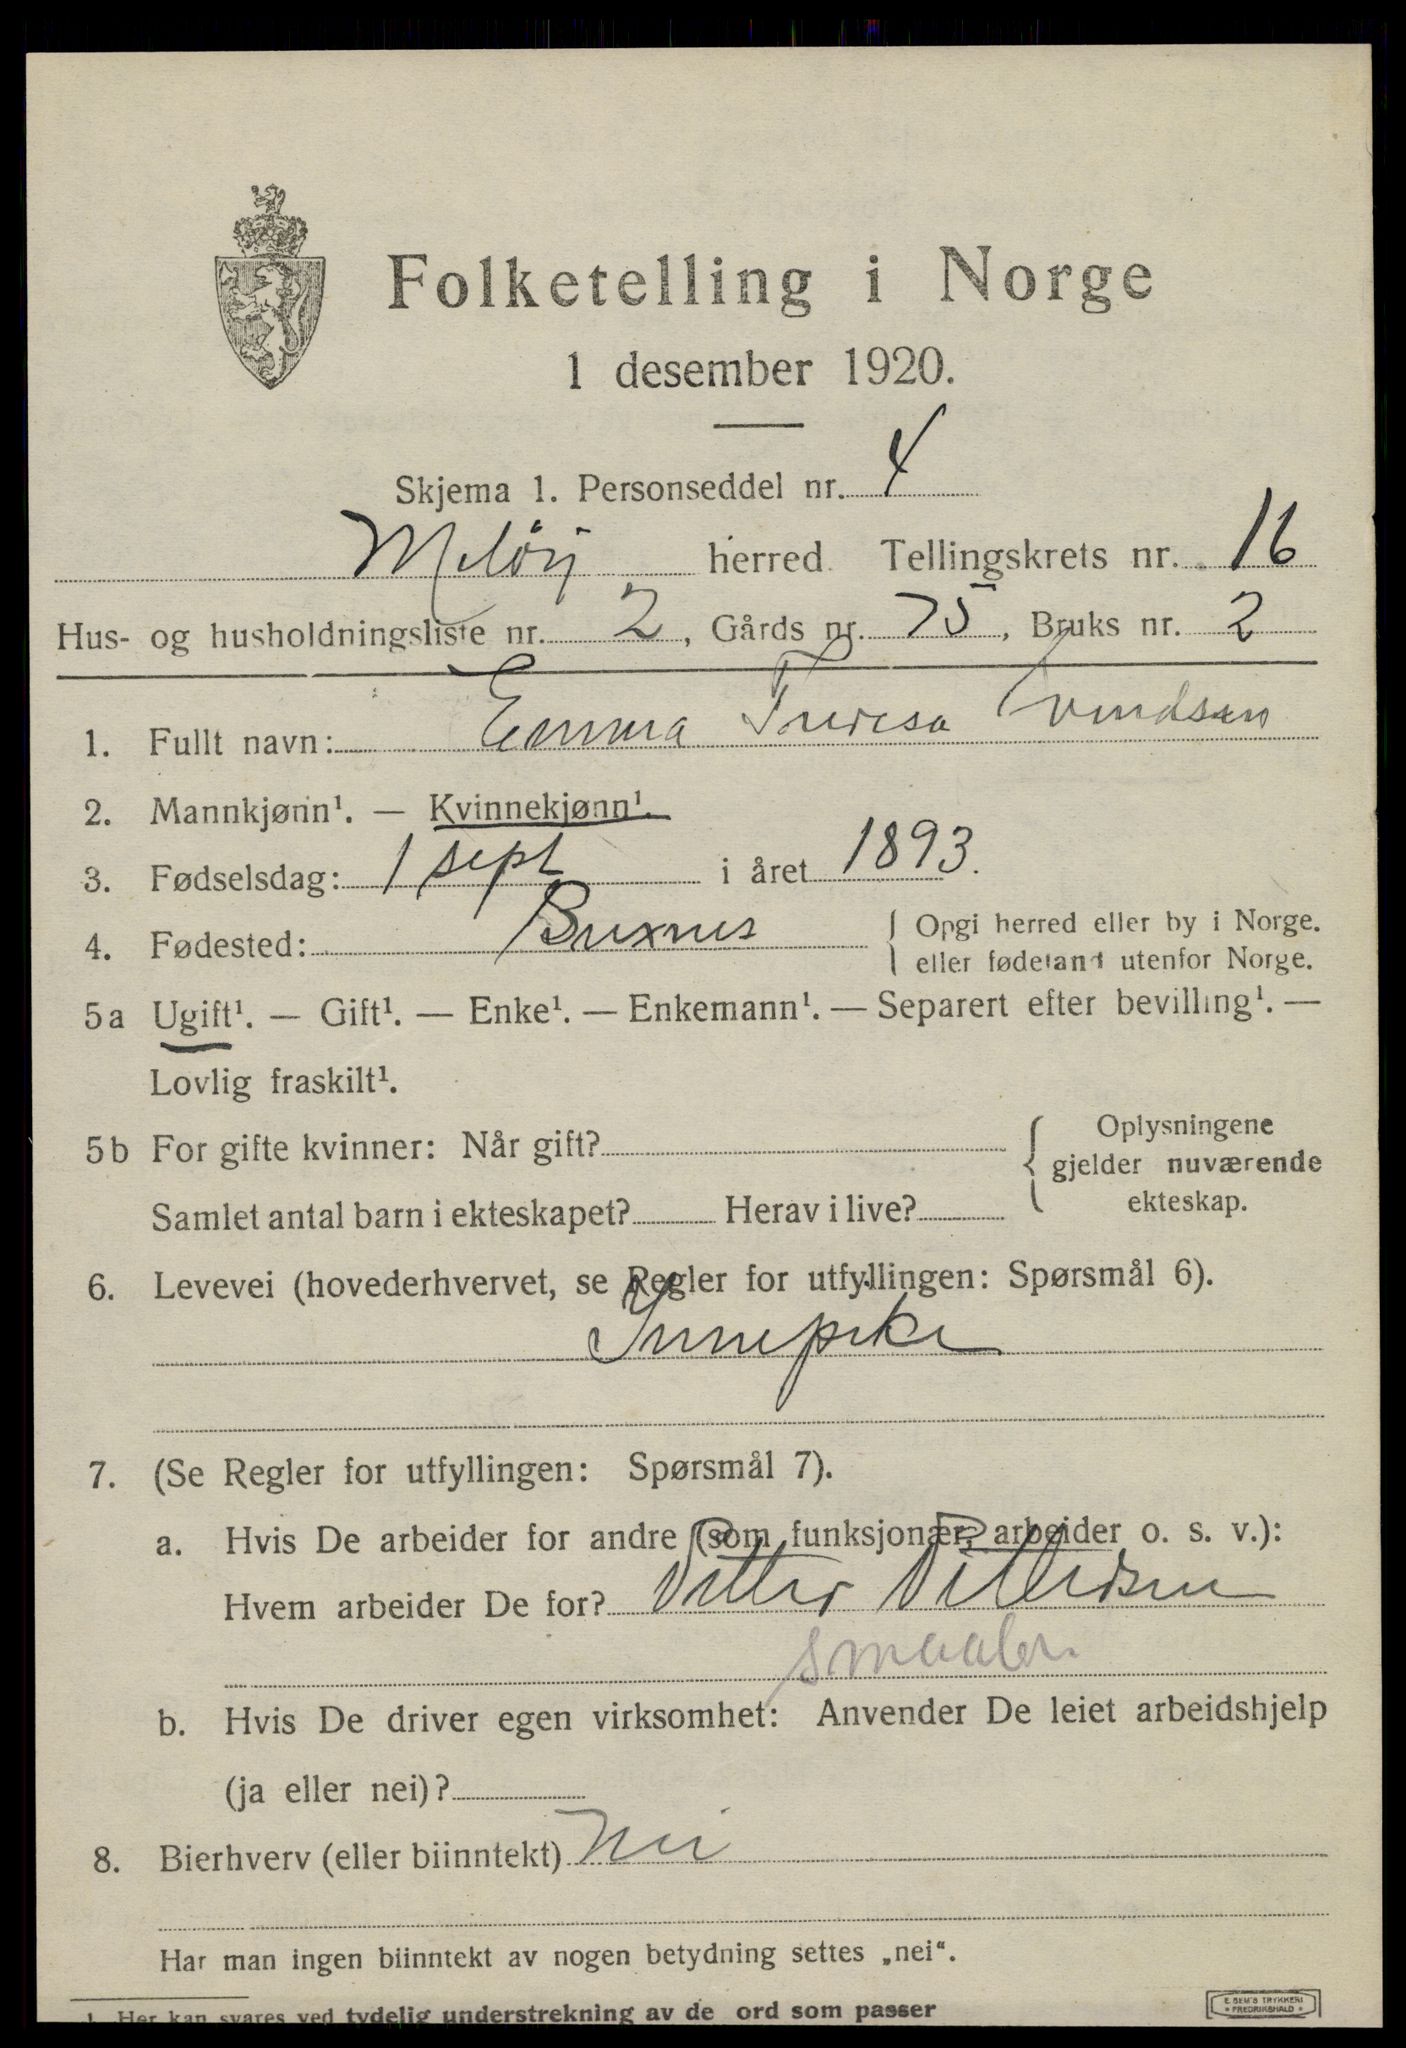 Folketelling i Norge
1 desember 1920.
Skjema 1. Personseddel nr. 4
Meløy herred. Tellingskrets nr. 16
Hus- og husholdningsliste nr. 2, Gårds nr. 75, Bruks nr. 2
1. Fullt navn: Emma Theresa
2. Mannkjønn¹. — Kvinnekjønn¹.
3. Fødselsdag: 1 sept i året 1893.
4. Fødested: Buxnes { Opgi herred eller by i Norge.
eller fødeland utenfor Norge.
5a Ugift¹. — Gift¹. — Enke¹. — Enkemann¹. — Separert efter bevilling¹. —
Lovlig fraskilt¹.
5b For gifte kvinner: Når gift?
Samlet antal barn i ekteskapet? Herav i live?
{ Oplysningene
gjelder nuværende
ekteskap.
6. Levevei (hovederhvervet, se Regler for utfyllingen: Spørsmål 6).
Innepike
7. (Se Regler for utfyllingen: Spørsmål 7).
a. Hvis De arbeider for andre (som funksjonær, arbeider o. s. v.):
Hvem arbeider De for? Petter Pettersen
b. Hvis De driver egen virksomhet: Anvender De leiet arbeidshjelp
(ja eller nei)?
8. Bierhverv (eller biinntekt) Nei
Har man ingen biinntekt av nogen betydning settes „nei“.
1. Her kan svares ved tydelig understrekning av de ord som passer
E. SEM'S TRYKKERI
* FREDRIKSHALD *